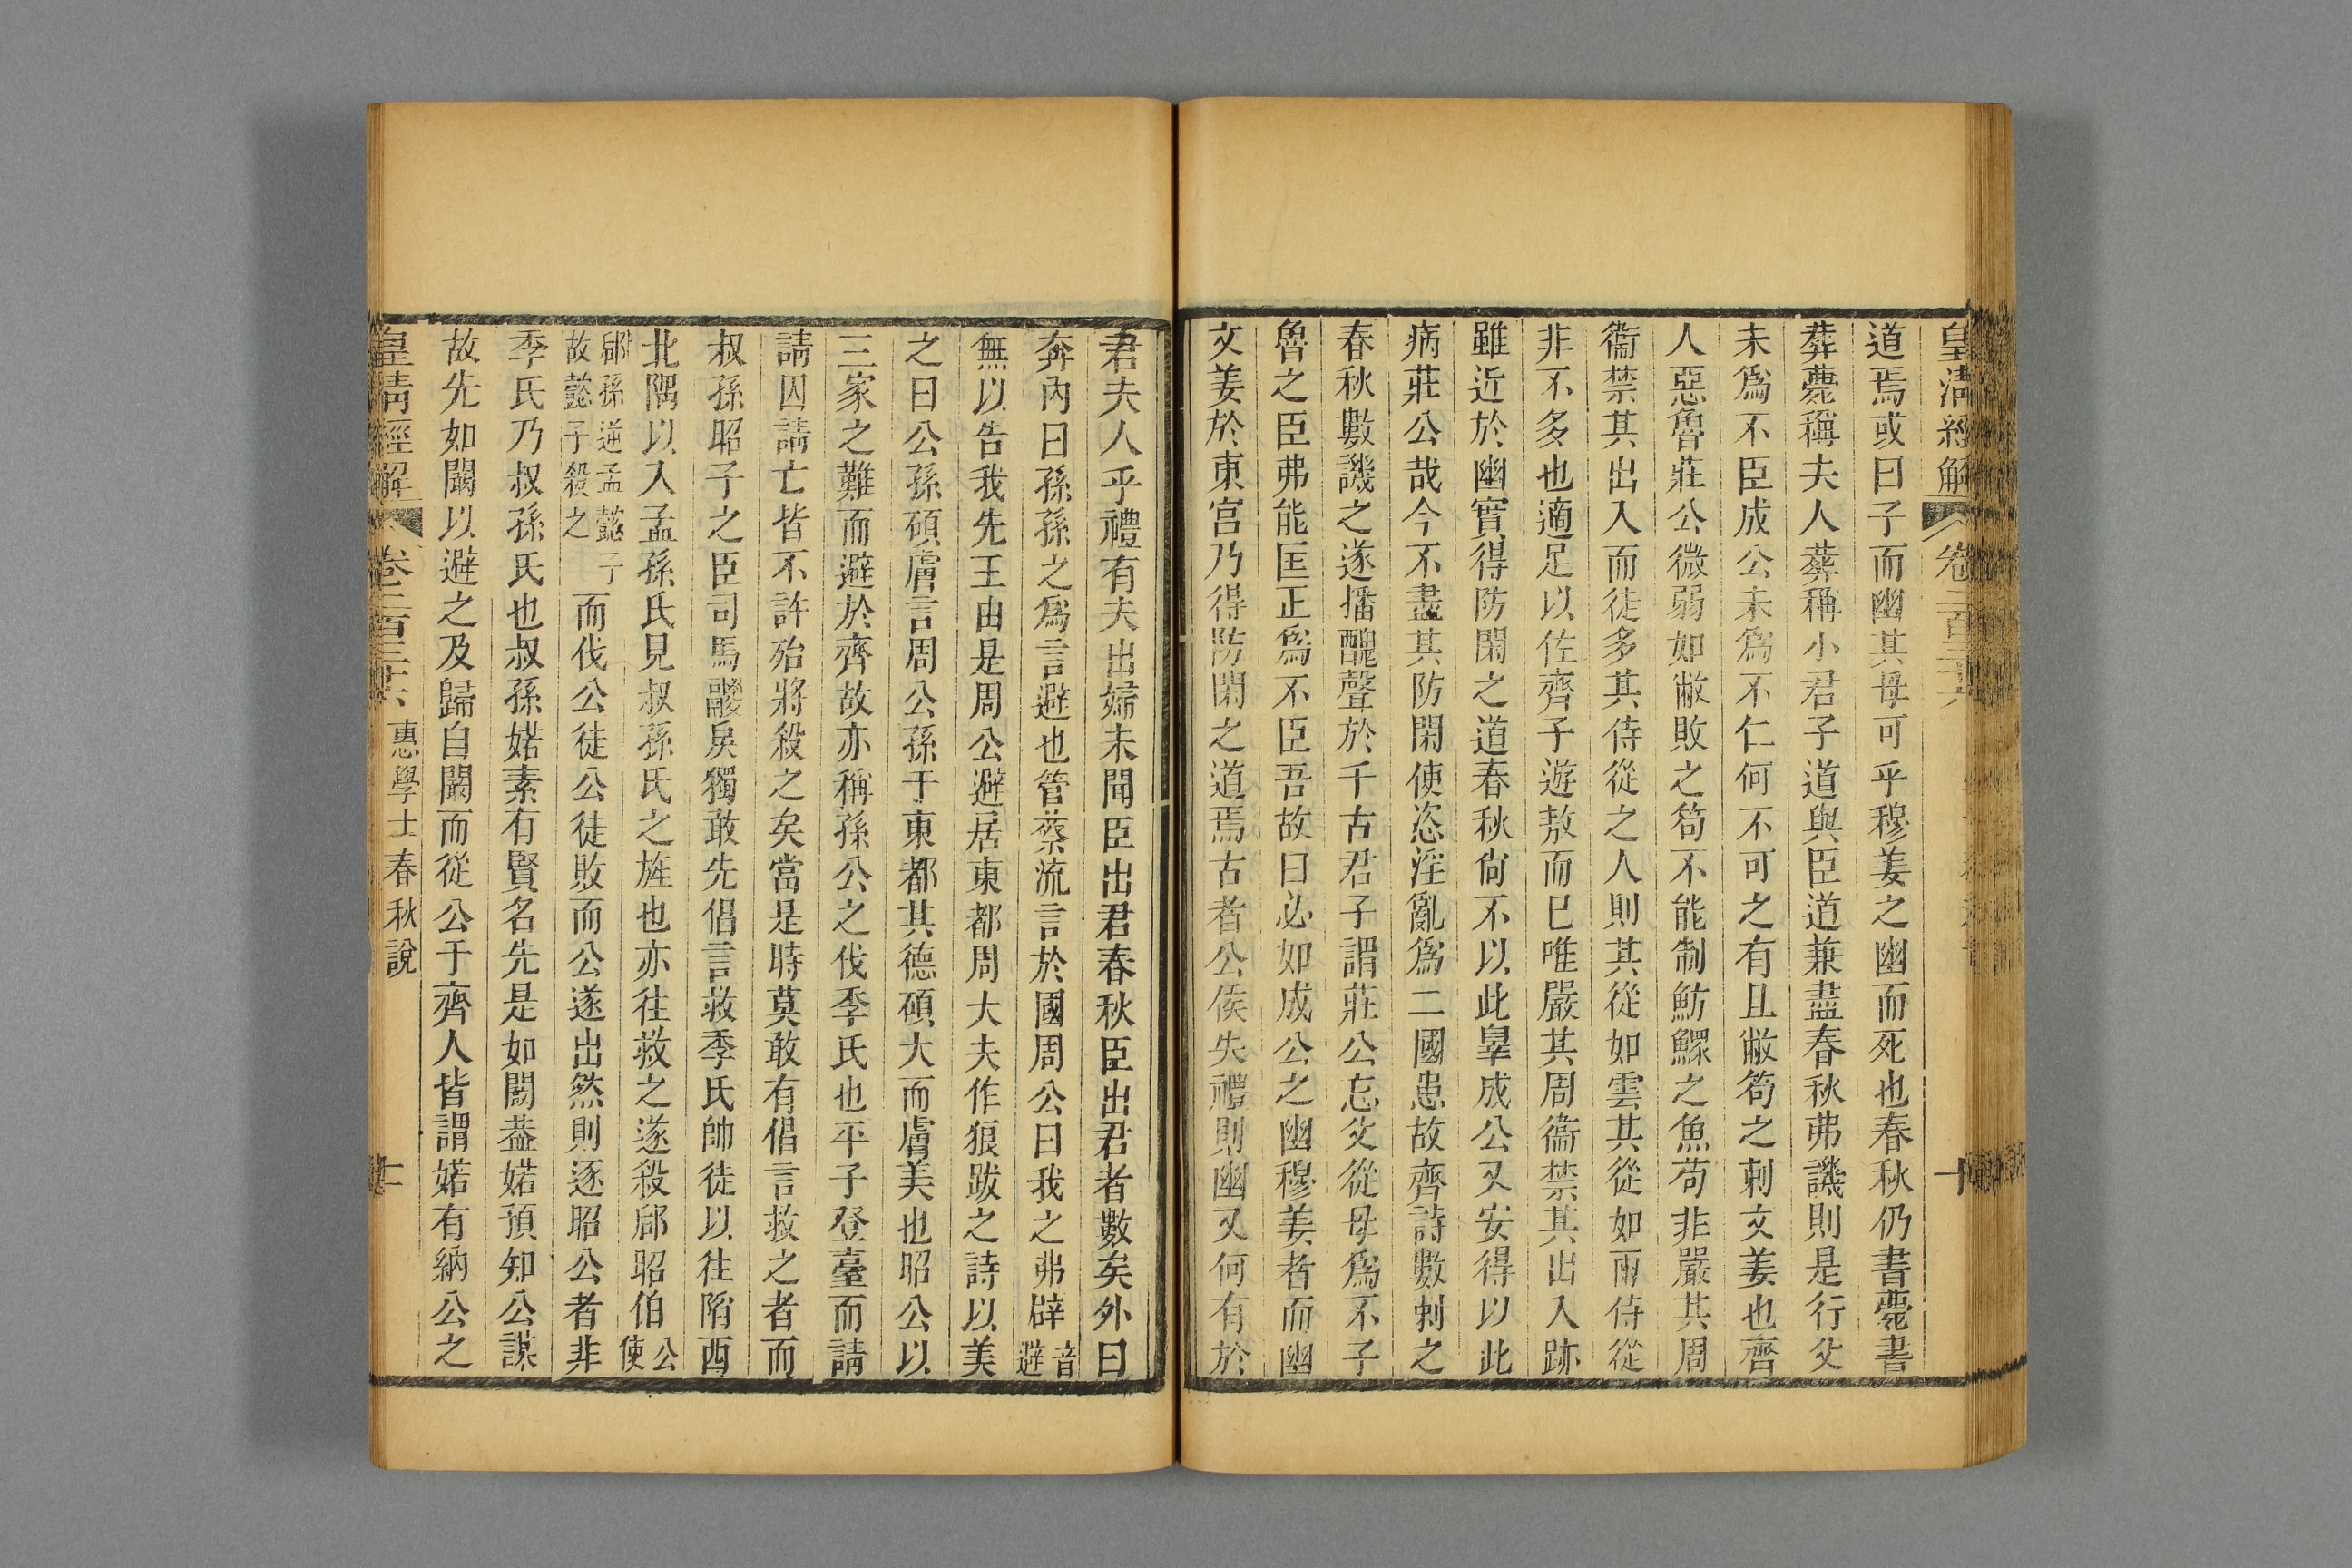 皇清經解
卷二百三十六
十
道焉或曰子而幽其母可乎穆姜之幽而死也春秋仍書薨書
葬薨稱夫人葬稱小君子道與臣道兼盡春秋弗譏則是行父
未爲不臣成公未爲不仁何不可之有且敝笱之刺文姜也齊
人惡魯莊公微弱如敝敗之笱不能制魴鰥之魚苟非嚴其周
衞禁其出入而徒多其侍從之人則其從如雲其從如雨侍從
非不多也適足以佐齊子遊敖而已唯嚴其周衞禁其出入跡
雖近於幽實得防閑之道春秋尙不以此辠成公又安得以此
病莊公哉今不盡其防閑使恣淫亂爲二國患故齊詩數刺之
春秋數譏之遂播醜聲於千古君子謂莊公忘父從母爲不子
魯之臣弗能匡正爲不臣吾故曰必如成公之幽穆姜者而幽
文姜於東宫乃得防閑之道焉古者公侯失禮則幽又何有於
君夫人乎禮有夫出婦未聞臣出君春秋臣出君者數矣外曰
奔內曰孫孫之爲言避也管蔡流言於國周公曰我之弗辟音避
無以告我先王由是周公避居東都周大夫作狼跋之詩以美
之曰公孫碩膚言周公孫于東都其德碩大而膚美也昭公以
三家之難而避於齊故亦稱孫公之伐季氏也平子登臺而請
請囚請亡皆不許殆將殺之矣當是時莫敢有倡言救之者而
叔孫昭子之臣司馬鬷戾獨敢先倡言救季氏帥徒以往陷西
北隅以入孟孫氏見叔孫氏之旌也亦往救之遂殺郈昭伯公使
郈孫逆孟懿子故懿子殺之而伐公徒公徒敗而公遂出然則逐昭公者非
季氏乃叔孫氏也叔孫婼素有賢名先是如闞葢婼預知公謀
故先如闞以避之及歸自闞而從公于齊人皆謂婼有納公之
皇清經解
卷二百三十六
惠學士春秋說
十一